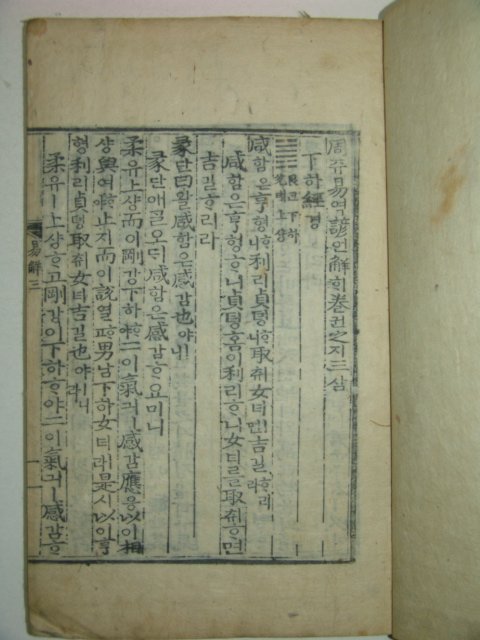 周쥬易역諺언解ᄒᆡ卷권之지三삼
下하經경
艮간下하
兌태上샹
咸함은亨형ᄒᆞ니利리貞뎡ᄒᆞ니取취女녀ㅣ면吉길ᄒᆞ리라
咸함은亨형ᄒᆞ니貞뎡홈이利리ᄒᆞ니女녀ᄅᆞᆯ取취ᄒᆞ면
吉길ᄒᆞ리라
彖단曰왈咸함은感감也야ㅣ니
彖단애ᄀᆞᆯ오ᄃᆡ咸함은感감홈이니
柔유上샹而이剛강下하ᄒᆞ야二이氣긔ㅣ感감應응以이相
샹與여ᄒᆞ야止지而이說열ᄒᆞ고男남下하女녀ㅣ라是시以이亨
형利리貞뎡取취女녀吉길也야ㅣ라
柔유ㅣ上샹ᄒᆞ고剛강이下하ᄒᆞ야二이氣긔ㅣ感감ᄒᆞ
易解三